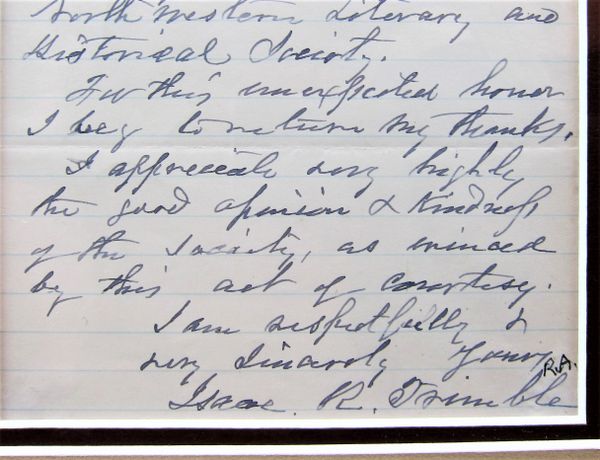 North Western Literary and
Historical Society.
For this unexpected honor
I beg to return my thanks.
I appreciate very highly
the good opinion & kindness
of the Society, as evinced
by this act of courtesy.
I am respectfully &
very Sincerely Yours
R.A.
Isaac R. Trimble